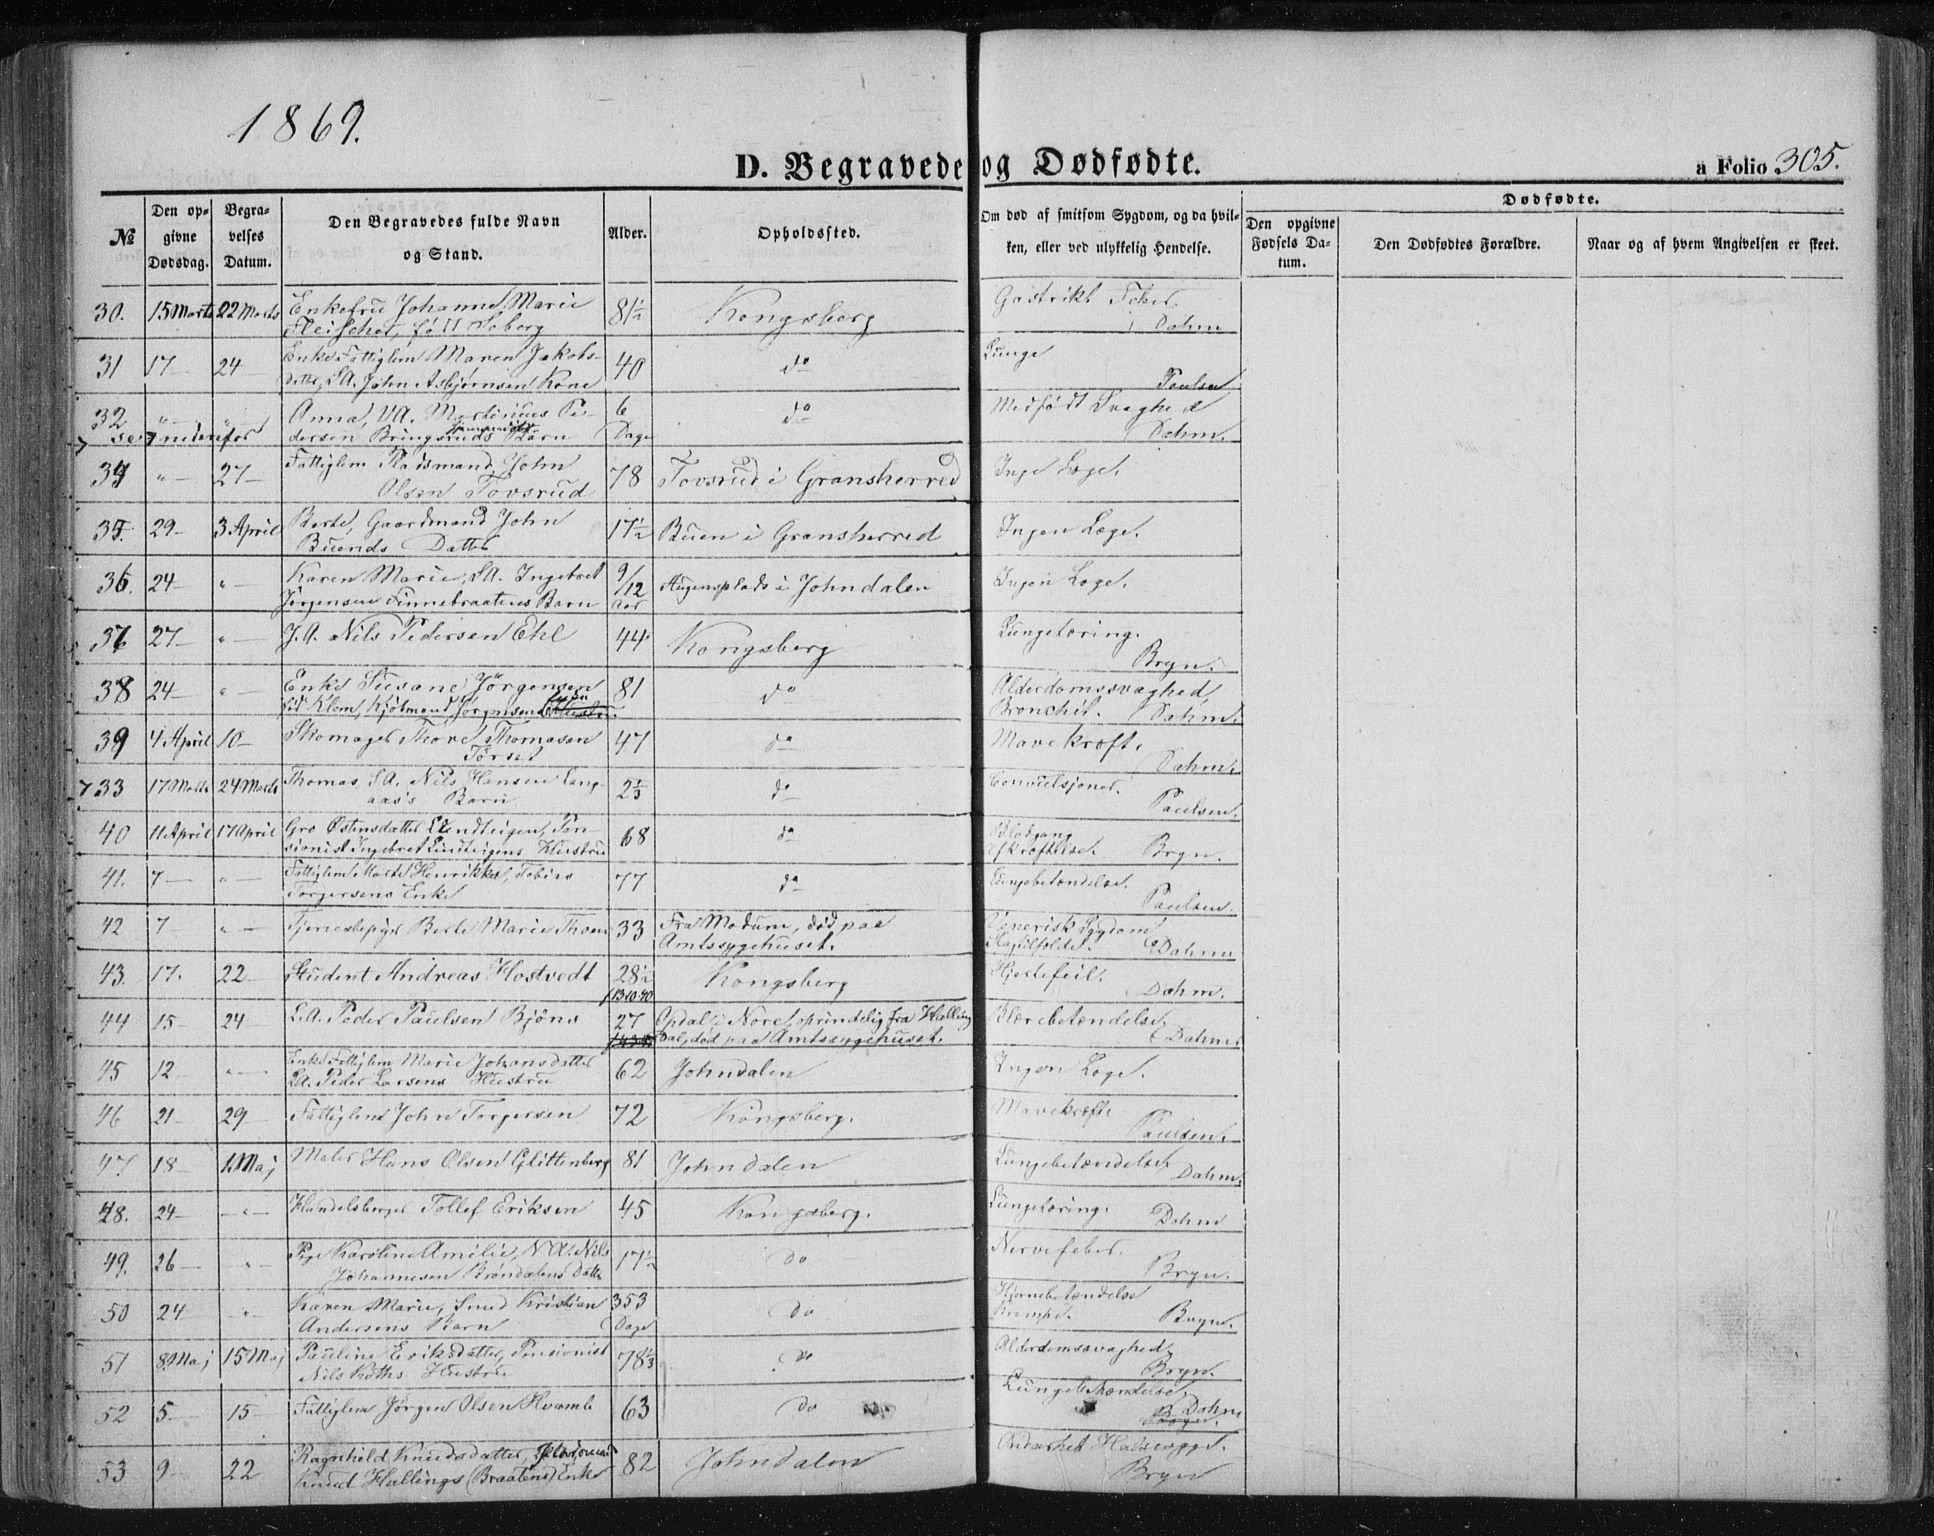 1869.
D. Begravede og Dødfødte.
a Folio 305.
No
Den opgivne Dødsdag.
Begravelses Datum.
Den Begravedes fulde Navn og Stand.
Alder.
Opholdssted.
Om død af smitsom Sygdom, og da hvilken, eller ved ulykkelig Hendelse.
Dødfødte.
Den opgivne Fødsels Datum.
Den Dødfødtes Forældre.
Naar og af hvem Angivelsen er skeet.
30. 15 Marts 22 Marts Enkefru Johanne Marie 81½ Kongsberg Gastrikt Feber.
Fleischer, født Dahm
31 17 24 Enke Fattiglem Maren Jakobs- 40 do Lunge
datter, John Asbjørnsen Kone Paulsen
32 " " Anna, Martinius Pe- 6 do Medfødt Svaghed
dersen Bringsruds Børn Dage Dahm.
7 se nedenfor
34 " 27 Fattiglem Raadsmand John 78 Tovsrud i Gransherred Inge Læge.
Olsen Tovsrud
35. 29 3 April Berte, Gaardmand John 17½ Buen i Gransherred Ingen Læge.
Buends Datter
36. 24 " Karen Marie, Ingebret 9/12 i Johndalen Ingen Læge.
Jørgensen Finnebraatens Barn Aar
37 27 " Nils Pedersen Ehl 44 Kongsberg Lungetæring.
Bryn.
38 24 " Enke Susane Jørgensen 81 do Alderdomssvaghed
Klem, Kjøbmand Jørgensens Bronchit. Dahm.
39 4 April 10 Skomager Thore Thomasen 47 do Mavekræft.
Dahm.
7 33 17 Marts 24 Marts Thomas, Nils Hansen Lang- 2⅓ do Convulsjoner.
aas's Barn Paulsen.
40 11 April 17 April Gro Østensdatter Lindteigen, Pen- 68 do Blodgang
sionist Ingebret Lindteigens Hustru Afkræftelse. Bryn.
41. 7 " Fattiglem Henrikke, Tobias 77 do Lungebetændelse.
Torgersens Enke Paulsen.
42 7 " Tjenestepige Berte Marie 33 Fra Modum, død paa Venerisk Sygdom
Amtssygehuset. Dahm
43. 17. 22 Student Andreas Hostvedt 28½ Kongsberg Hjertefeil.
13-10-40 Dahm.
44 15 24 Peder Paulsen Bjøns 27 Opdal i Nore, oprindelig fra Halling
dal, død paa Amtssygehuset. Blærebetændelse.
Dahm.
45 12 " Enke Fattiglem Marie Johansdatter 62 Johndalen Ingen Læge.
Peder Larsens Hustru
46 21 29 Fattiglem John Torgersen 72 Kongsberg. Mavekræft
Paulsen.
47. 18 1 Maj Maler Hans Olsen Glittenberg 81 Johndalen Lungebetændelse.
Dahm.
48. 24 " Handelsborger Tollef Eriksen 45 Kongsberg. Lungetæring.
Dahm
49. 26 " Pige Karoline Amelie, Nils 17½ do Nervefeber.
Johannesen Brøndalens Datter Bryn.
50 24 " Karen Marie, Smed Kristian 353 do Hjernebetændelse
Andersens Barn Dage Krampe. Bryn.
51 8. Maj 15 Maj Pauline Eriksdatter, Pensionist 78⅓ do Alderdomssvaghed
Nils Hustru Bryn.
52 5 15 Fattiglem Jørgen Olsen Hvamb 63 do Lungebetændelse.
Dahm
Bryn.
53 9 22 Ragnhild Knudsdatter, 82 Johndalen
Knud Hallings (Braatens) Enke Bryn